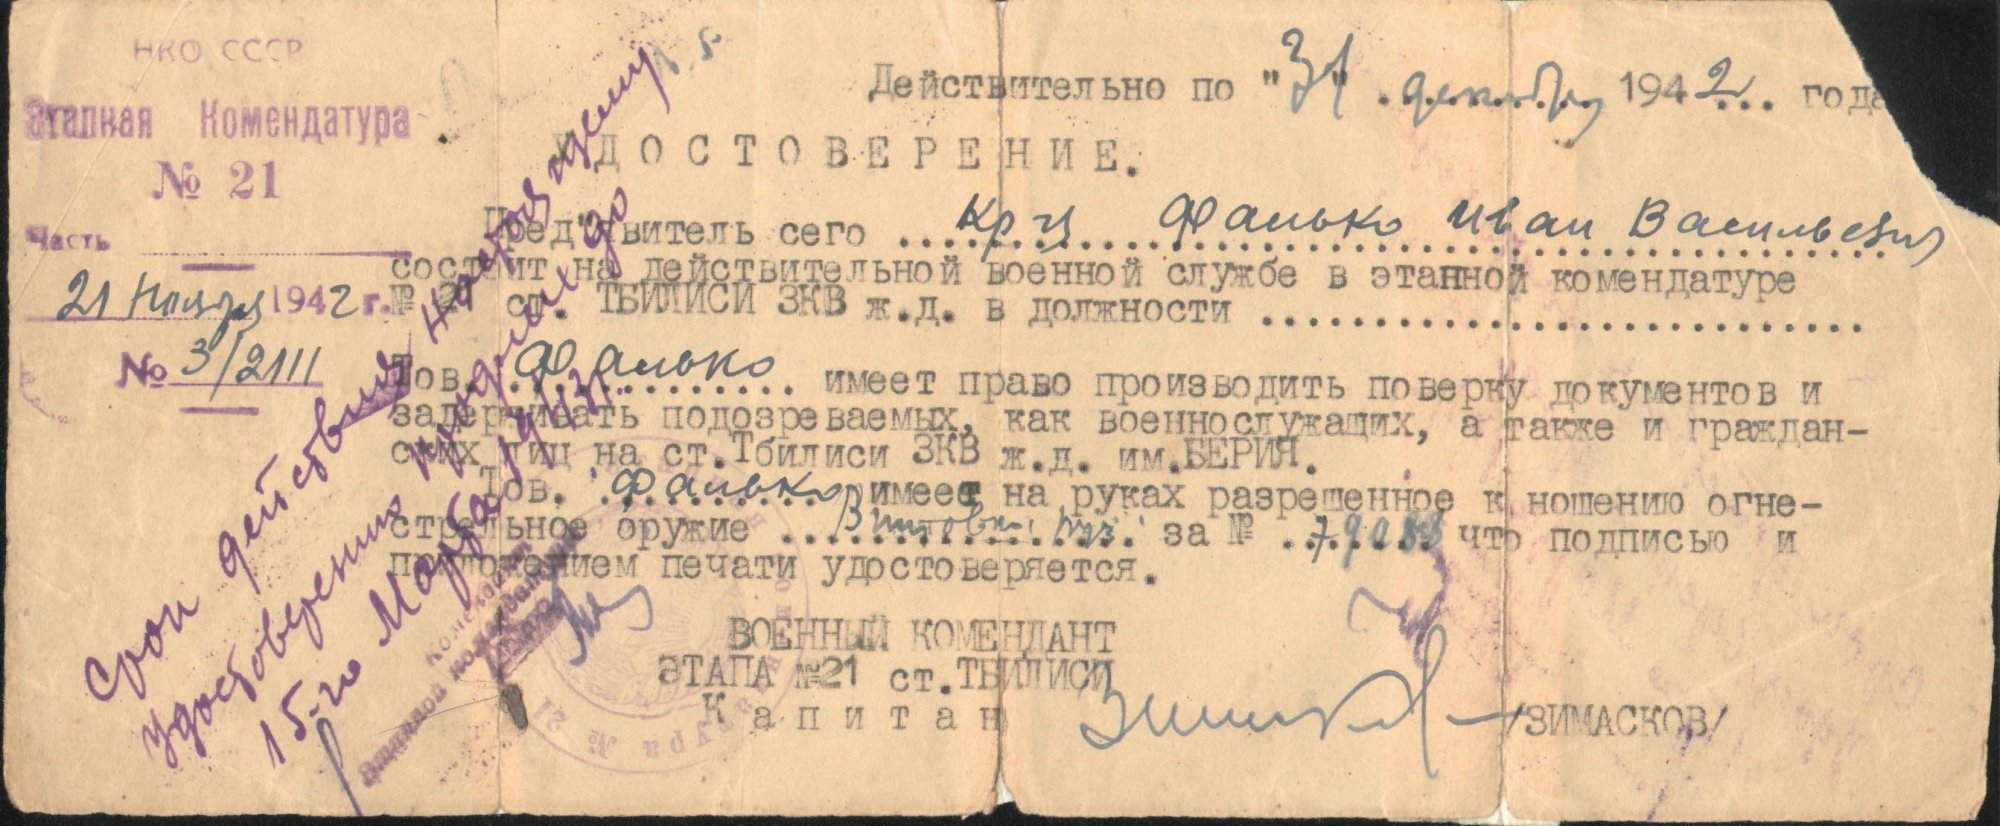 НКО СССР
Этапная Комендатура
№ 21
Часть
21 Ноября 1942 г.
№ 3/2111
Действительно по "31" декабря 1942 года
УДОСТОВЕРЕНИЕ.
Пред"явитель сего Кр-ц Фалько Иван Васильевич
состоит на действительной военной службе в этапной комендатуре
№ 21 ст. ТБИЛИСИ ЗКВ ж.д. в должности
Тов. Фалько имеет право производить поверку документов и
задерживать подозреваемых, как военнослужащих, а также и граждан-
ских лиц на ст.Тбилиси ЗКВ ж.д. им.БЕРИЯ.
Тов. Фалько имеет на руках разрешенное к ношению огне-
стрельное оружие Винтовка за № что подписью и
приложением печати удостоверяется.
ВОЕННЫЙ КОМЕНДАНТ
ЭТАПА №21 ст.ТБИЛИСИ
Капитан /ЗИМАСКОВ/
Срок действия настоящему
удостоверению продлен до
15-го Марта 1943г.